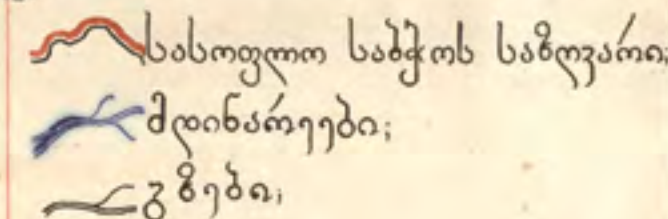 სასოფლო საბჭოს საზღვარი;
მდინარეები;
გზები;